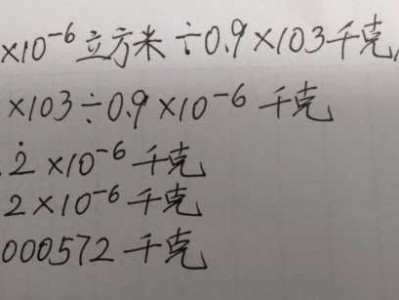 ×10⁻⁶立方米÷0.9×103千克/
×103÷0.9×10⁻⁶千克
.2̇×10⁻⁶千克
2×10⁻⁶千克
000572千克